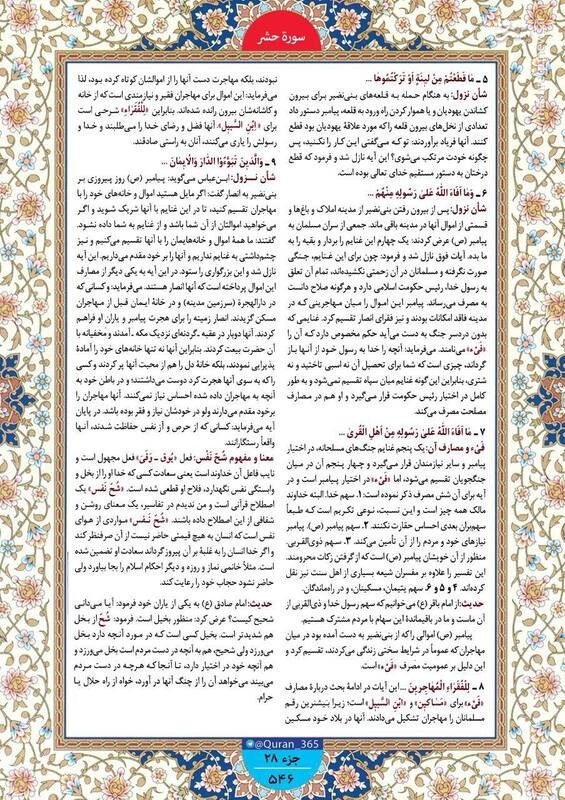 سورهٔ حشر
۵ ـ مَا قَطَعْتُمْ مِنْ لِينَةٍ أَوْ تَرَكْتُمُوهَا ...
شأن نزول: به هنگام حمله به قلعه‌های بنی‌نضیر برای بیرون
کشاندن یهودیان و یا هموار کردن راه ورود به قلعه، پیامبر دستور داد
تعدادی از نخل‌های بیرون قلعه را که مورد علاقهٔ یهودیان بود قطع
کنند. آنها فریاد برآوردند: تو که می‌گفتی این کار را نکنید، پس
چگونه خودت مرتکب می‌شوی؟ این آیه نازل شد و فرمود که قطع
درختان به دستور مستقیم خدای تعالی بوده است.
۶ ـ وَمَا أَفَاءَ اللَّهُ عَلَىٰ رَسُولِهِ مِنْهُمْ ...
شأن نزول: پس از بیرون رفتن بنی‌نضیر از مدینه املاک و باغ‌ها و
قسمتی از اموال آنها در مدینه باقی ماند. جمعی از سران مسلمان به
پیامبر (ص) عرض کردند: یک چهارم این غنایم را بردار و بقیه را به
ما بده. آیات فوق نازل شد و فرمود: چون برای این غنایم، جنگی
صورت نگرفته و مسلمانان در آن زحمتی نکشیده‌اند، تمام آن تعلق
به رسول خدا، رئیس حکومت اسلامی دارد و هرگونه صلاح دانست
به مصرف می‌رساند. پیامبر این اموال را میان مهاجرینی که در
مدینه فاقد امکانات بودند و نیز فقرای انصار تقسیم کرد. غنایمی که
بدون دردسر جنگ به دست می‌آید حکم مخصوص دارد که آن را
«فَیْء» می‌نامند. می‌فرماید: آنچه را خدا به رسول خود از آنها باز
گرداند، چیزی است که شما برای تحصیل آن نه اسبی تاختید و نه
شتری، بنابراین این گونه غنایم میان سپاه تقسیم نمی‌شود و به طور
کامل در اختیار رئیس حکومت قرار می‌گیرد و او هم در مصارف
مصلحت مصرف می‌کند.
۷ ـ مَا أَفَاءَ اللَّهُ عَلَىٰ رَسُولِهِ مِنْ أَهْلِ الْقُرَىٰ ...
فَیْء و مصارف آن: یک پنجم غنایم جنگ‌های مسلحانه، در اختیار
پیامبر و سایر نیازمندان قرار می‌گیرد و چهار پنجم آن در میان
جنگجویان تقسیم می‌شود، اما «فَیْء» در اختیار پیامبر است و در
آیه برای آن شش مصرف ذکر نموده است: ۱. سهم خدا. البته خداوند
مالک همه چیز است و این نسبت، نوعی تکریم است که طبعاً
سهم‌بران بعدی احساس حقارت نکنند. ۲. سهم پیامبر (ص). پیامبر
نیازهای خود و مردم را از آن تأمین می‌کند. ۳. سهم ذوی‌القربی.
منظور از آن خویشان پیامبر (ص) است که از گرفتن زکات محرومند.
این تفسیر را علاوه بر مفسران شیعه بسیاری از اهل سنت نیز نقل
کرده‌اند. ۴ و ۵ و ۶. سهم یتیمان، مسکینان، و در راه‌ماندگان.
حدیث: از امام باقر (ع) می‌خوانیم که سهم رسول خدا و ذی‌القربی از
آن ماست و ما در باقیماندهٔ این سهام با مردم مشترک هستیم.
پیامبر (ص) اموالی را که از بنی‌نضیر به دست آمده بود در میان
مهاجران که عموماً در شرایط سختی زندگی می‌کردند، تقسیم کرد و
این دلیل بر عمومیت مصرف «فَیْء» است.
۸ ـ لِلْفُقَرَاءِ الْمُهَاجِرِينَ ... این آیات در ادامهٔ بحث دربارهٔ مصارف
«فَیْء» برای «مَسَاکِین» و «ابْنِ السَّبِیل» است؛ زیرا بیشترین رقم
مسلمانان را مهاجران تشکیل می‌دادند. آنها در بلاد خود مسکین
نبودند، بلکه مهاجرت دست آنها را از اموالشان کوتاه کرده بود، لذا
می‌فرماید: این اموال برای مهاجران فقیر و نیازمندی است که از خانه
و کاشانه‌شان بیرون رانده شده‌اند. بنابراین «لِلْفُقَرَاءِ» شرحی است
برای «ابْنِ السَّبِیل». آنها فضل و رضای خدا را می‌طلبند و خدا و
رسولش را یاری می‌کنند، آنان به راستی صادقند.
۹ ـ وَالَّذِينَ تَبَوَّءُوا الدَّارَ وَالْإِيمَانَ ...
شأن نزول: ابن‌عباس می‌گوید: پیامبر (ص) روز پیروزی بر
بنی‌نضیر به انصار گفت: اگر مایل هستید اموال و خانه‌های خود را با
مهاجران تقسیم کنید، تا در این غنایم با آنها شریک شوید و اگر
می‌خواهید اموالتان از آن شما باشد و از غنایم به شما داده نشود.
گفتند: ما همهٔ اموال و خانه‌هایمان را با آنها تقسیم می‌کنیم و نیز
چشم‌داشتی به غنایم نداریم و آنها را بر خود مقدم می‌داریم. این آیه
نازل شد و این بزرگواری را ستود. در این آیه به یکی دیگر از مصارف
این اموال پرداخته است که آنها انصار هستند. می‌فرماید: و کسانی که
در دارالهجرة (سرزمین مدینه) و در خانهٔ ایمان قبل از مهاجران
مسکن گزیدند. انصار زمینه را برای هجرت پیامبر و یاران او فراهم
کردند. آنها دوبار در عقبه ـ گردنه‌ای نزدیک مکه ـ آمدند و مخفیانه با
آن حضرت بیعت کردند. بنابراین آنها نه تنها خانه‌های خود را آمادهٔ
پذیرایی نمودند، بلکه خانهٔ دل را هم از محبت آنها پر کردند و کسی
را که به سوی آنها هجرت کرد دوست می‌داشتند؛ و در باطن خود به
آنچه به مهاجران داده شده احساس نیاز نمی‌کنند. آنها مهاجران را
برخود مقدم می‌دارند ولو در خودشان نیاز و فقر بوده باشد. در پایان
آیه می‌فرماید: کسانی که از حرص و آز نفس حفاظت شدند، آنها
واقعاً رستگارانند.
معنا و مفهوم شُحّ نَفْس: فعل «یُوقَ ـ وَقَیَ» فعل مجهول است و
نایب فاعل آن خداوند است یعنی سعادت کسی که خدا او را از بخل و
وابستگی نفس نگهدارد، فلاح او قطعی شده است. «شُحّ نَفْس» یک
اصطلاح قرآنی است و من ندیدم در تفاسیر، یک معنای روشن و
شفافی از این اصطلاح داده باشند. «شُحّ نَفْس» مواردی از هوای
نفس است که انسان به هیچ قیمتی حاضر نیست از آن صرفنظر کند
و اگر خدا انسان را به غلبهٔ بر آن پیروز گرداند سعادت او تضمین شده
است. مثلاً خانمی نماز و روزه و دیگر احکام اسلام را بجا بیاورد ولی
حاضر نشود حجاب خود را رعایت کند.
حدیث: امام صادق (ع) به یکی از یاران خود فرمود: آیا می‌دانی
شحیح کیست؟ عرض کرد: منظور بخیل است. فرمود: شُحّ از بخل
هم شدیدتر است. بخیل کسی است که در مورد آنچه دارد بخل
می‌ورزد ولی شحیح، هم به آنچه در دست مردم است بخل می‌ورزد و
هم آنچه خود در اختیار دارد، تا آنجا که هرچه در دست مردم
می‌بیند می‌خواهد آن را از چنگ آنها در آورد، خواه از راه حلال یا
حرام.
@Quran_365
جزء ۲۸
۵۴۶